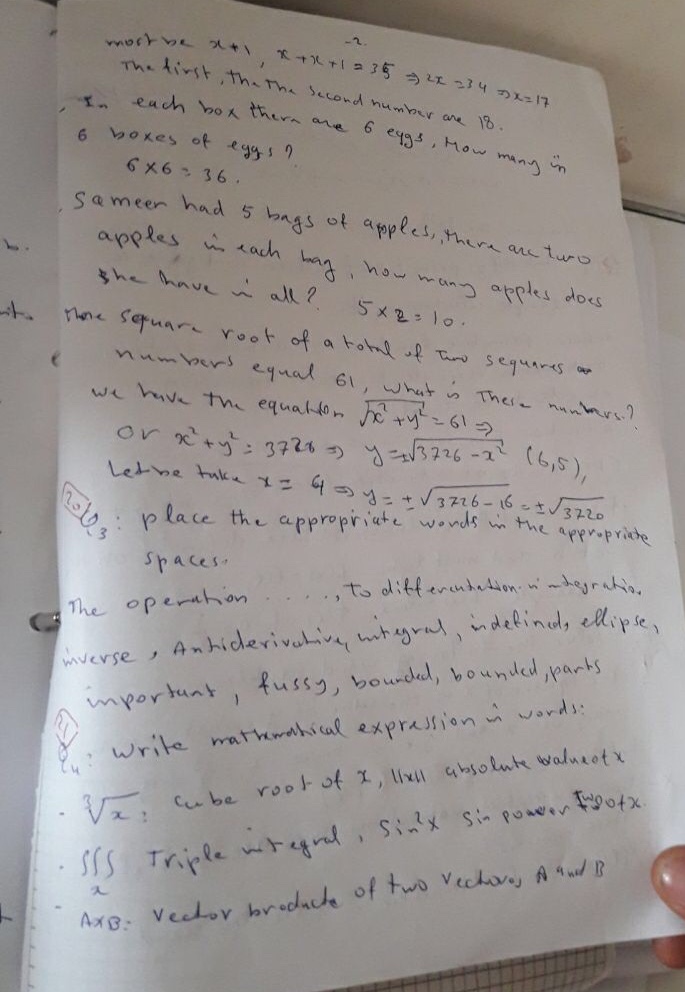 -2-
most be x+1, x+x+1=35 ⇒ 2x=34 ⇒ x=17
The first, the The second number are 18.
In each box thern are 6 eggs, How many in
6 boxes of eggs?
6×6=36.
Sameer had 5 bags of apples, there are two
apples in each bag, how many apples does
she have in all? 5×2=10.
square root of a total of Two sequares
numbers equal 61, what is These numbers?
we have the equation √x²+y² = 61 ⇒
or x²+y² = 3726 ⇒ y=±√3726-x² (6,5),
Let be take x = 4 ⇒ y = ±√3726-16 = ±√3720
20
Q3: place the appropriate words in the appropriate
spaces.
The operation ....., to differentiation is integration
inverse, Antiderivative, integral, indefined, ellipse,
inportant, fussy, bounded, bounded, parts
21
Q4: write mathematical expression in words:
- ∛x: cube root of x, ||x|| absolute value of x
. ∭x Triple integral, Sin²x Sin power two of x.
- A×B: vector broducte of two vectors, A and B